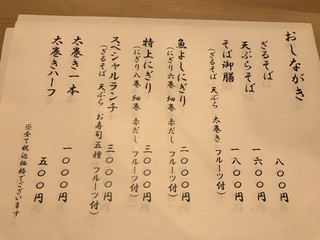 おしながき
ざるそば 八〇〇円
天ぷらそば 一六〇〇円
そば御膳 一八〇〇円
(ざるそば 天ぷら 太巻き フルーツ付)
魚よしにぎり 二〇〇〇円
(にぎり六巻 細巻 赤だし フルーツ付)
特上にぎり 三〇〇〇円
(にぎり八巻 細巻 赤だし フルーツ付)
スペシャルランチ 三〇〇〇円
(ざるそば 天ぷら お寿司五種 フルーツ付)
太巻き一本 一〇〇〇円
太巻きハーフ 五〇〇円
※全て税込価格でございます